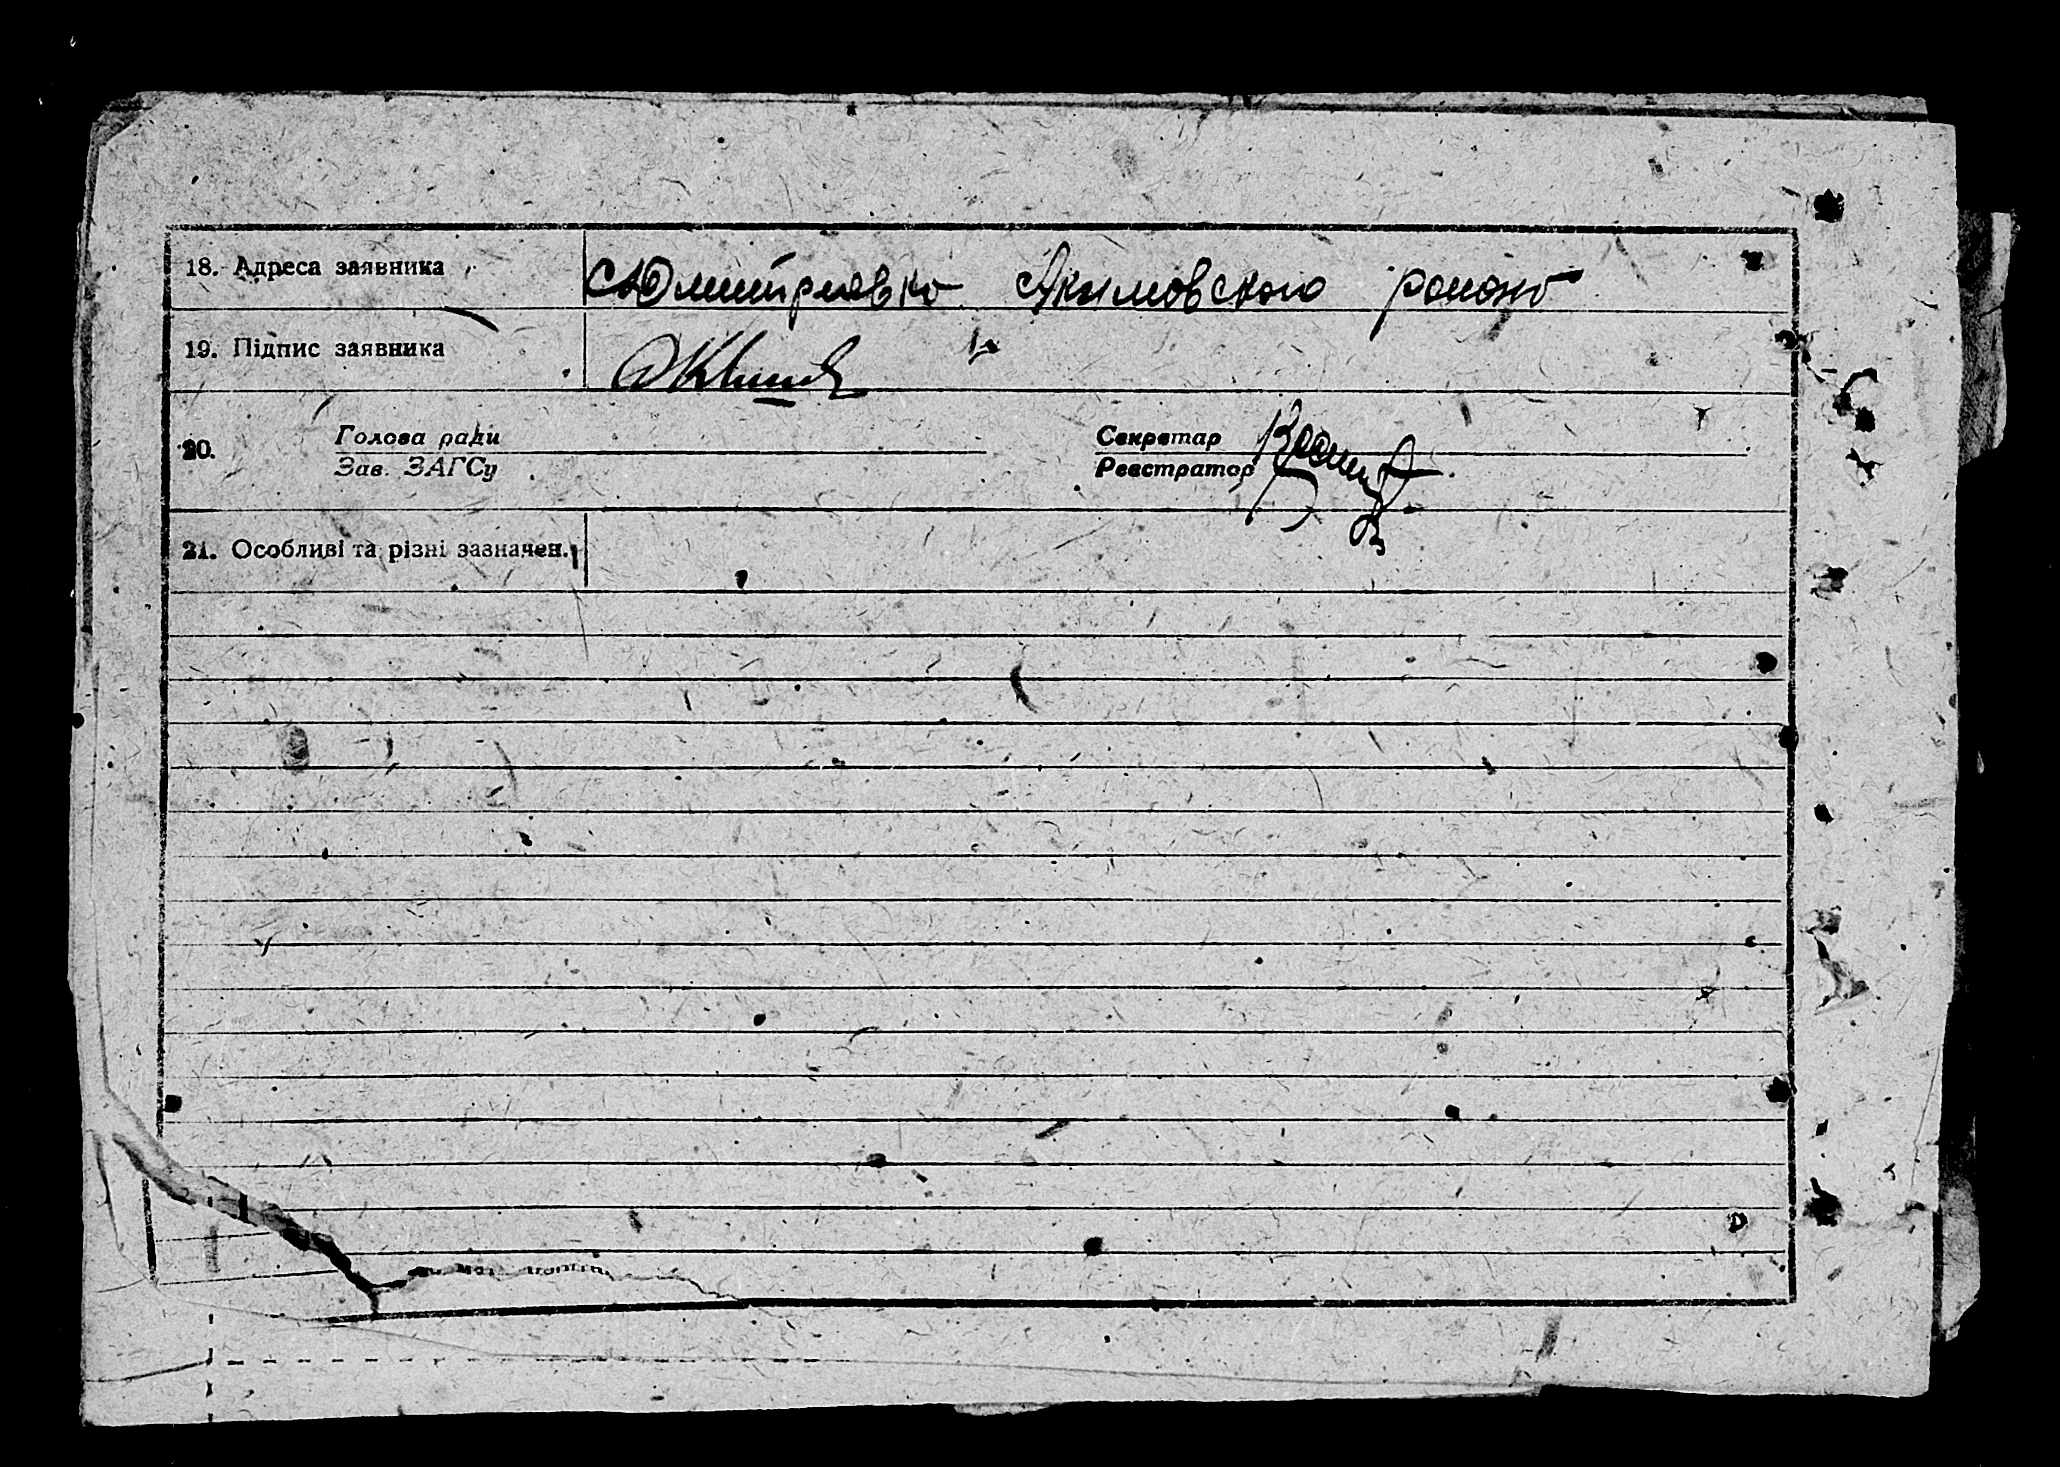 18. Адреса заявника с Дмитриевка Акимовского района
19. Підпис заявника
20. Голова ради Секретар
Зав. ЗАГСу Реєстратор
21. Особливі та різні зазначен.